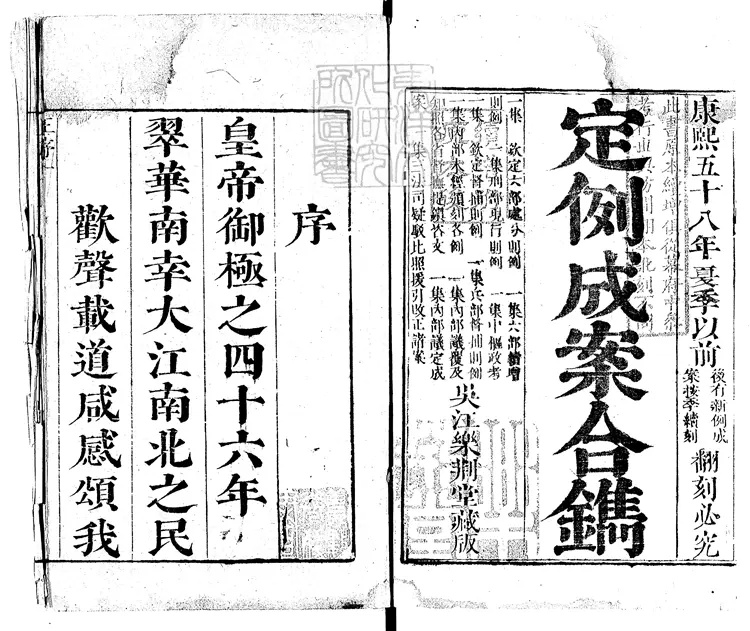 康熙五十八年夏季以前
後有新例成
案按季續刻
翻刻必究
定例成案合鐫
一集欽定六部處分則例
一集六部續增
則例
一集刑部現行則例
一集中樞政考
一集欽定督捕則例
一集兵部督捕則例
一集內部未經頒刻各例
一集內部議覆及
一集內部議定成
案
一集三法司疑駁比照援引改正諸案
吳江樂荆堂藏版
序
皇帝御極之四十六年
翠華南幸大江南北之民
歡聲載道咸感頌我